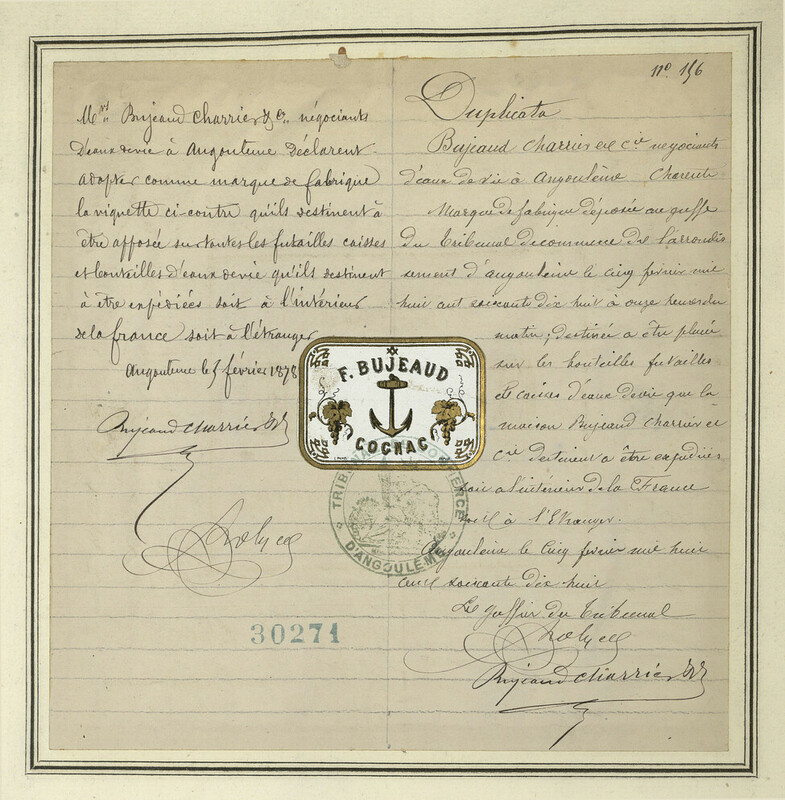 Mrs Bujeaud Charrier & Ce. négociants
D'eaux devie à Angouleme Déclarent
adopter comme marque de fabrique
la vignette ci-contre qu'ils destinent à
être apposée sur toutes les futailles caisses
et bouteilles d'eaux devie qu'ils destinent
à être expédiées soit à l'intérieur
de la france soit à l'étranger
Angouleme le 5 février 1878
Bujeaud Charrier
30271
F. BUJEAUD
COGNAC
TRIBUNAL DE COMMERCE
D'ANGOULÊME
No 156
Duplicata
Bujeaud Charrier et Cie négociants
d'eaux de vie à Angoulême Charente
Marque de fabrique déposée au greffe
du tribunal de commerce de l'arrondis
sement d'angoulême le cinq février mil
huit cent soixante dix huit à onze heures du
matin; destinée a être placée
sur les bouteilles futailles
et caisses d'eaux devie que la
maison Bujeaud Charrier et
Cie destinent a être expédiées
soit a l'intérieur de la France
soit à l'Etranger.
Angoulême le cinq février mil huit
cent soixante dix huit
Le greffier du tribunal
Bujeaud Charrier